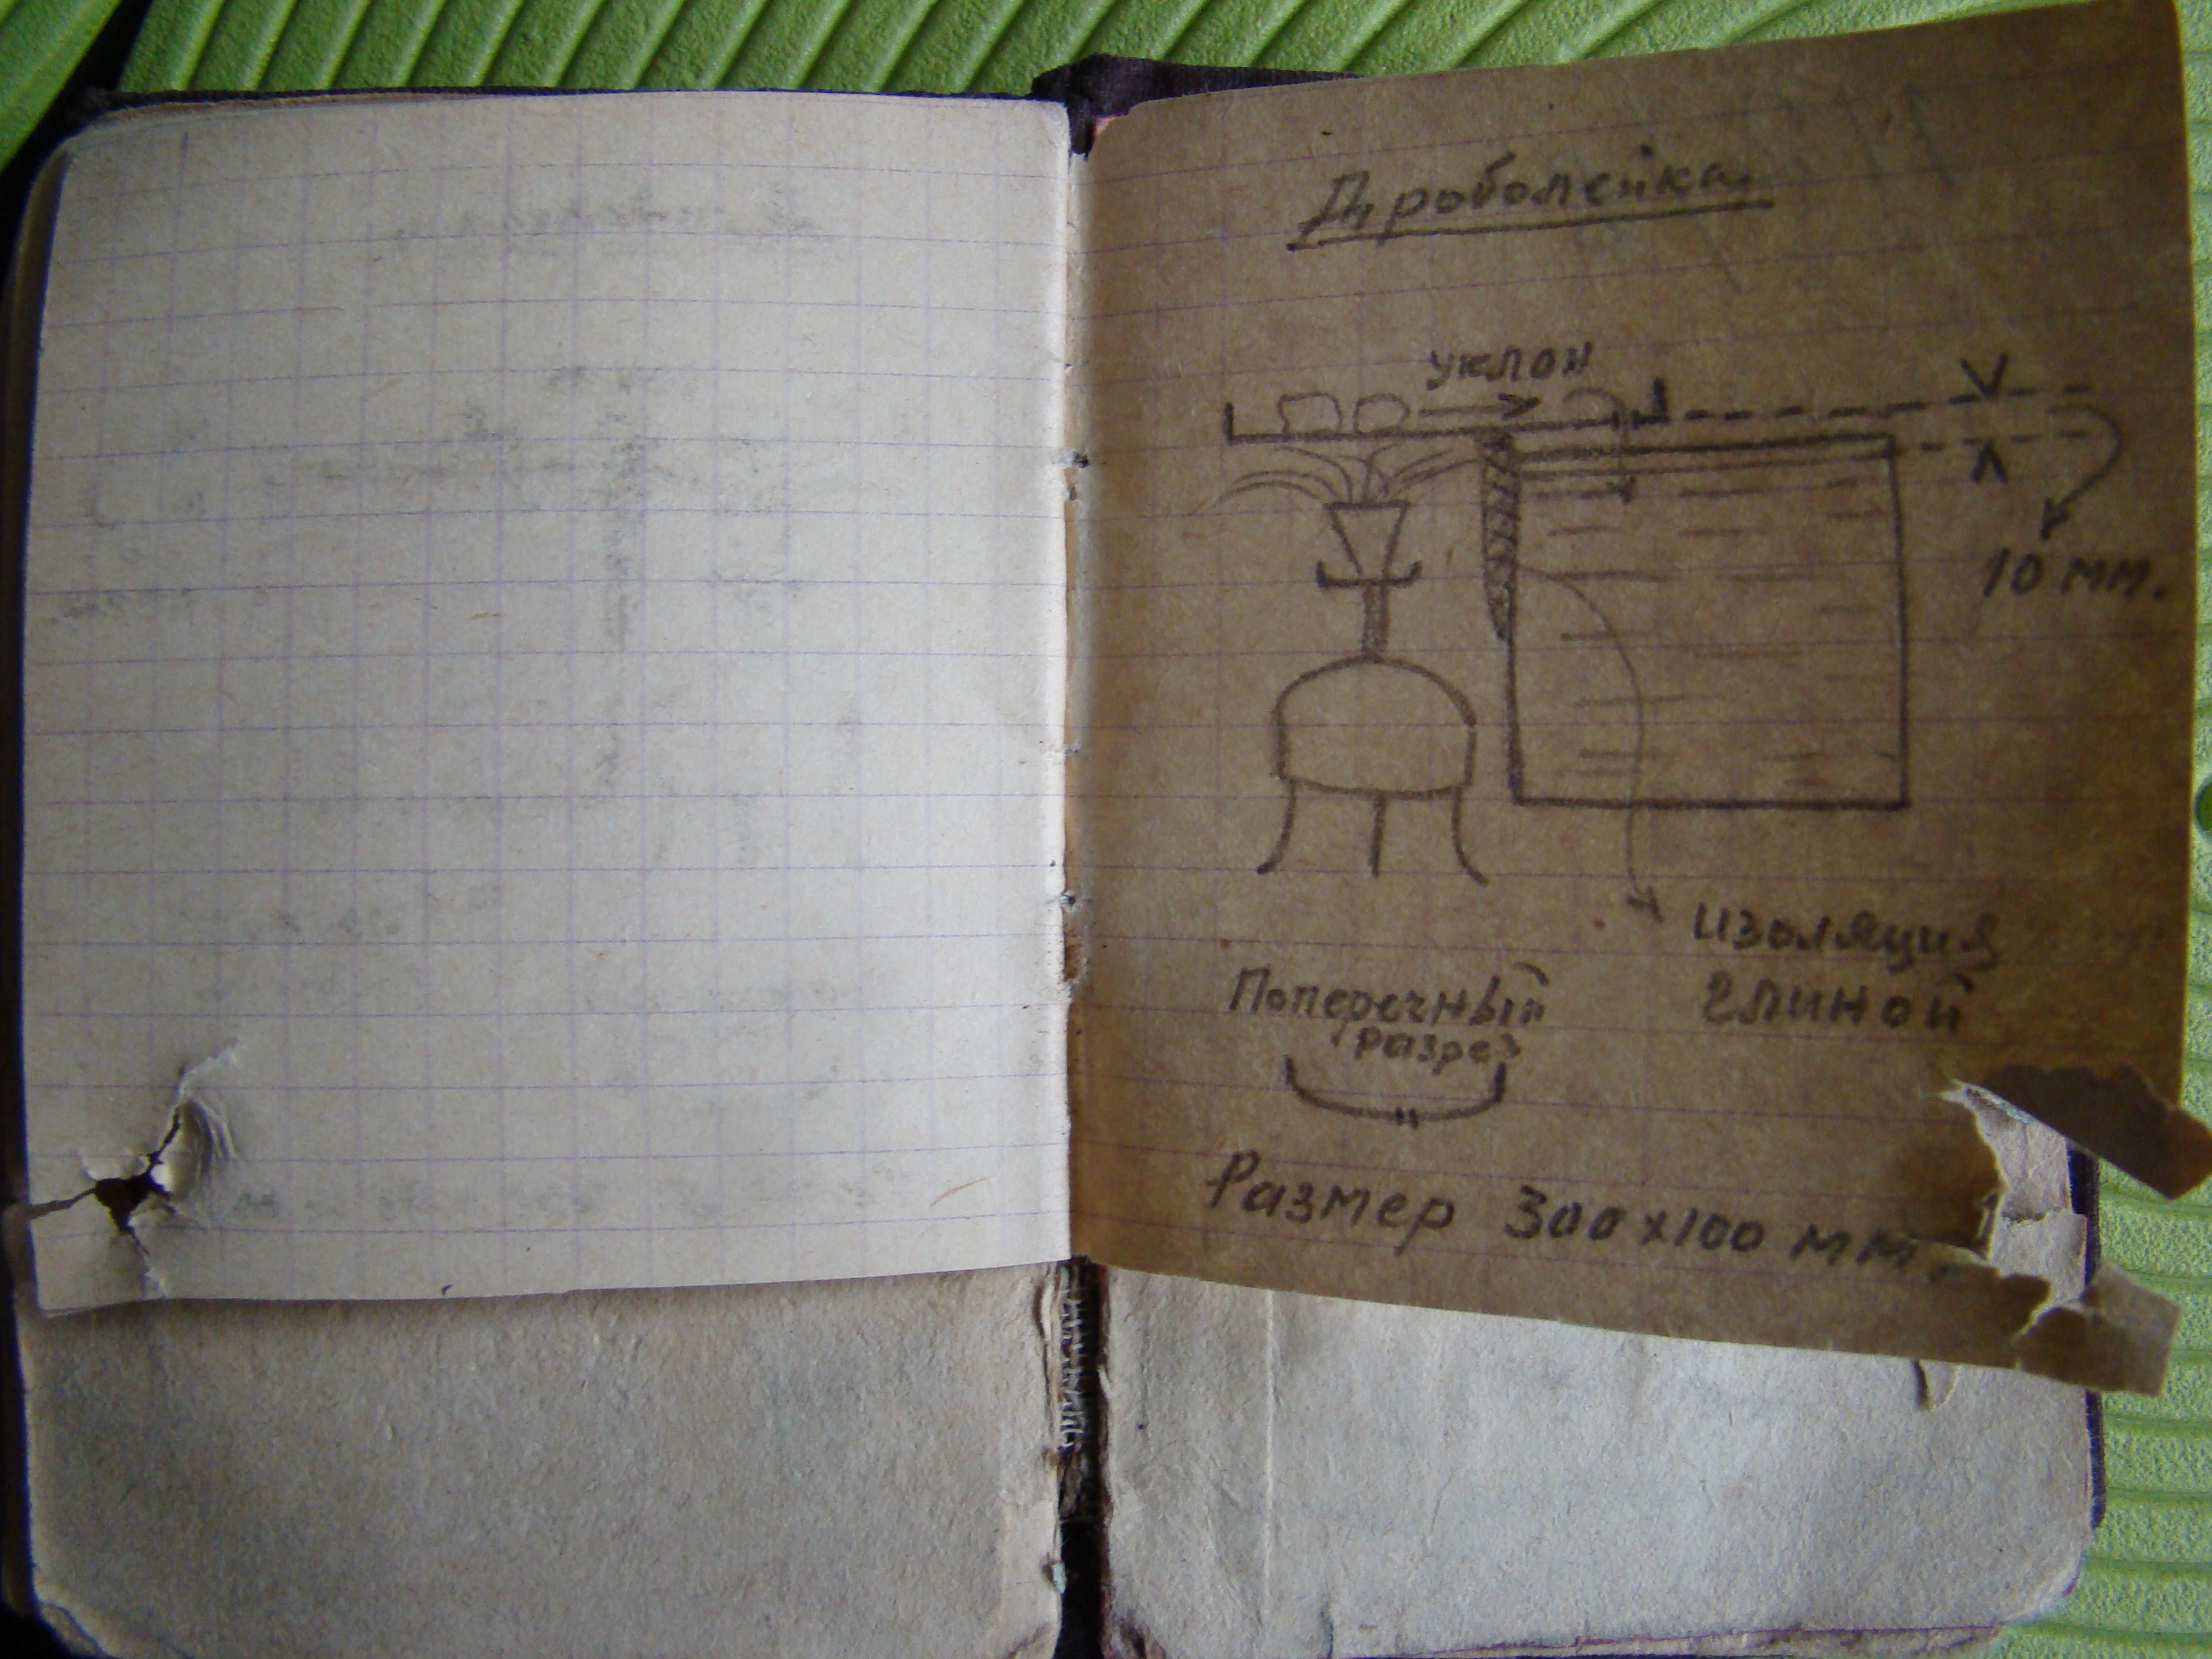 Дроболейка
уклон
10 мм.
изоляция
глиной
Поперечный
разрез
Размер 300х100 мм.